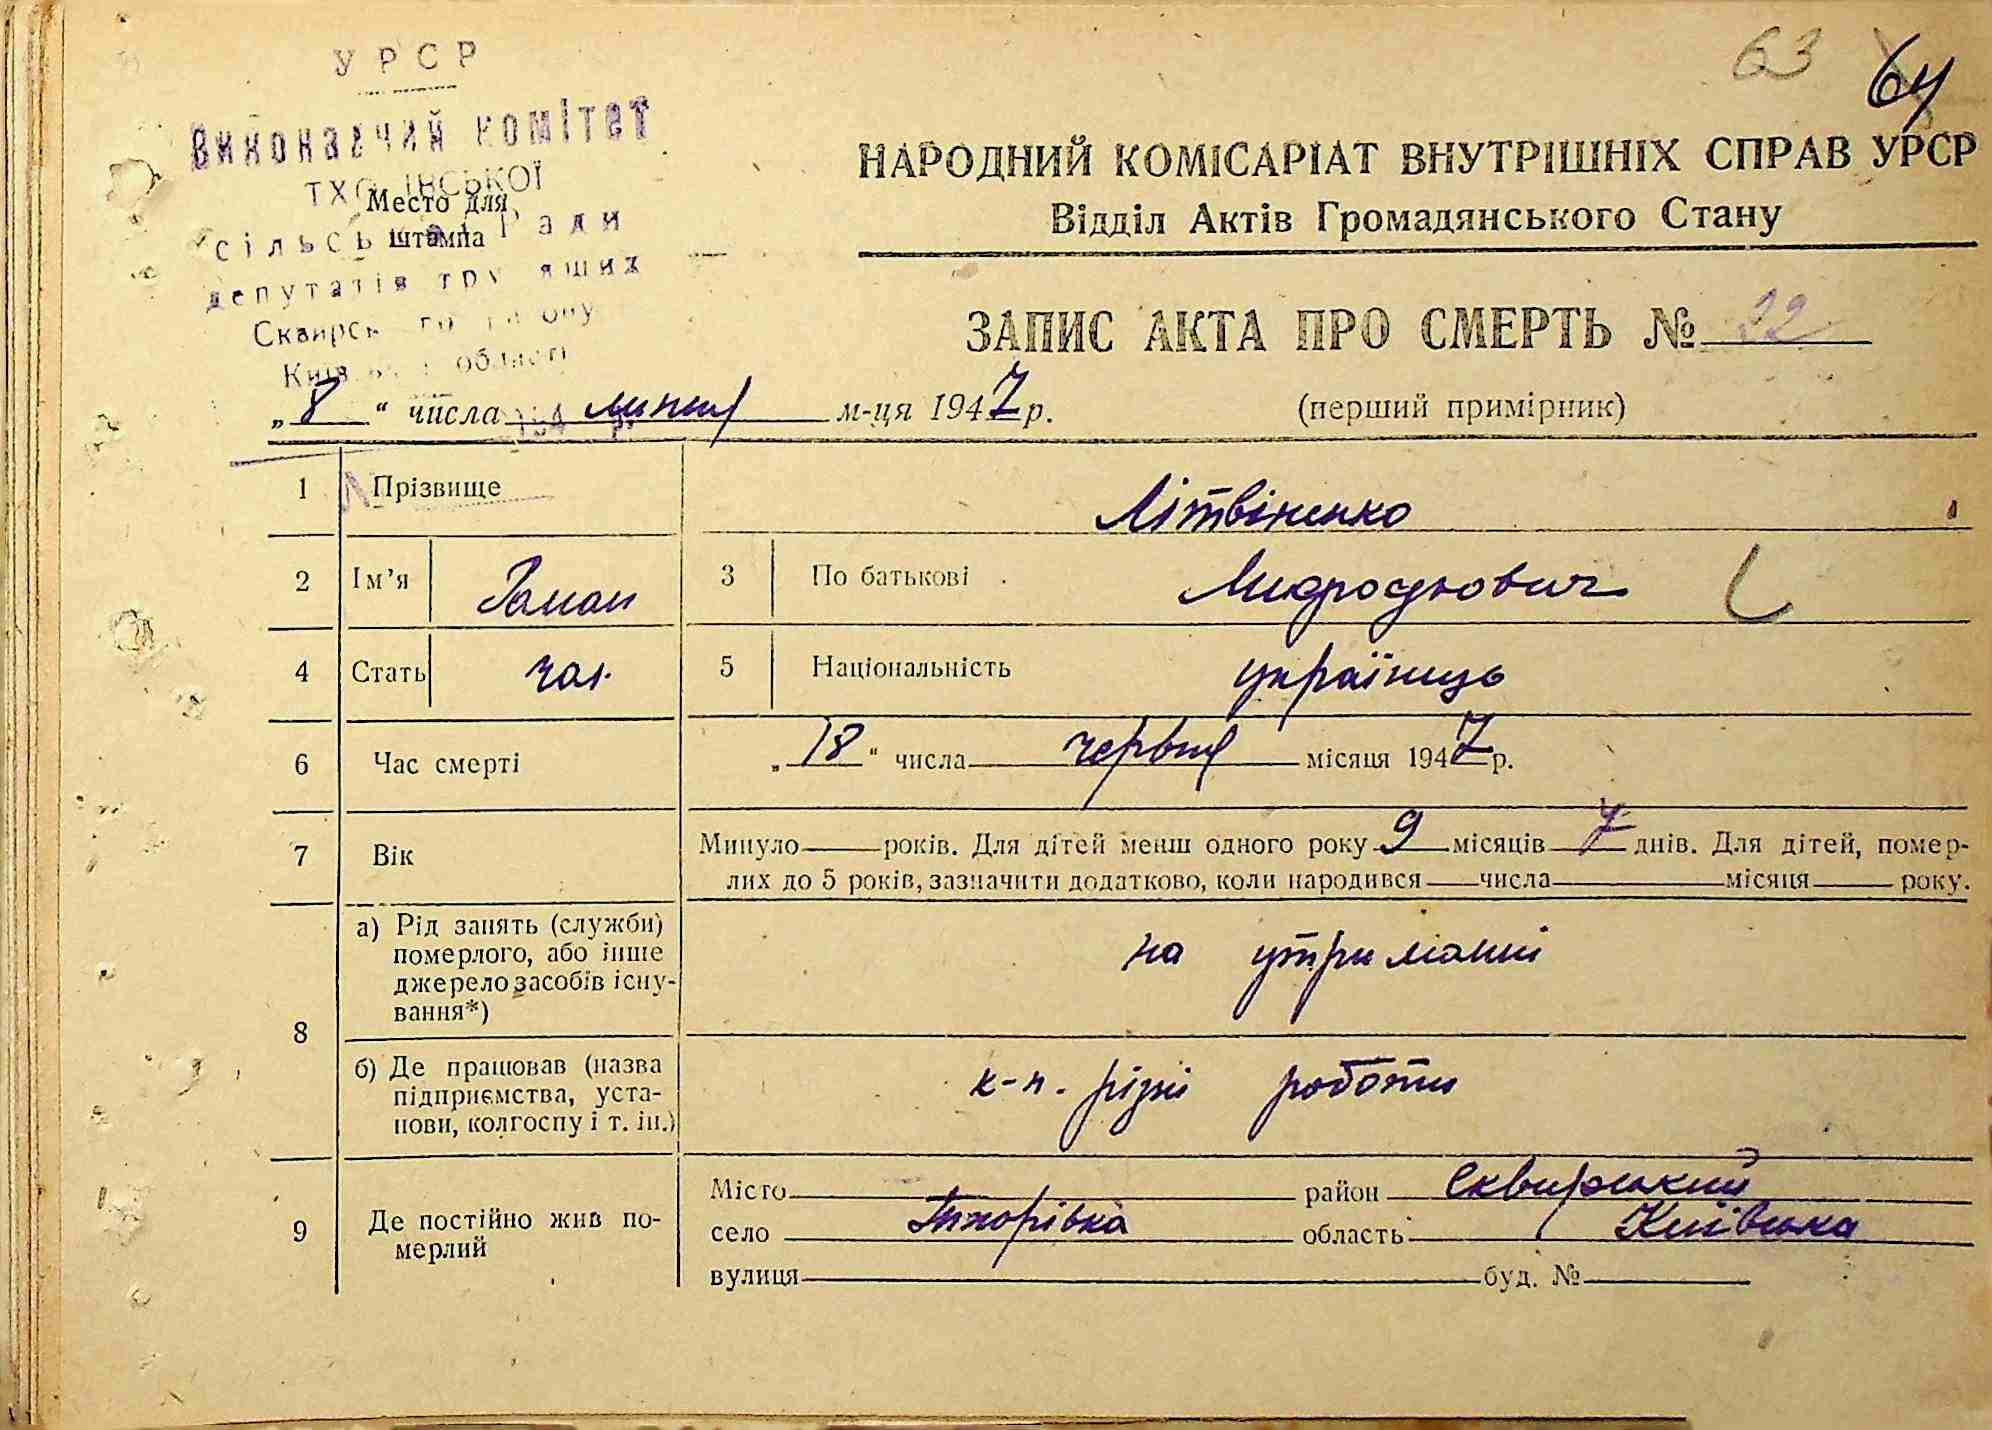 63 64
УРСР
Виконавчий комітет
Место для
штампа
сільської Ради
депутатів
НАРОДНИЙ КОМІСАРІАТ ВНУТРІШНІХ СПРАВ УРСР
Відділ Актів Громадянського Стану
ЗАПИС АКТА ПРО СМЕРТЬ № 22
„ 8 “ числа липня м-ця 1947 р.
(перший примірник)
1 Прізвище Літвіненко
2 Ім’я Роман 3 По батькові Митрофнович
4 Стать чол. 5 Національність українць
6 Час смерті „ 18 “ числа червня місяця 1947 р.
7 Вік Минуло років. Для дітей менш одного року 9 місяців 7 днів. Для дітей, помер-
лих до 5 років, зазначити додатково, коли народився числа місяця року.
8 а) Рід занять (служби)
померлого, або інше
джерело засобів існу-
вання*)
на утриманні
б) Де працював (назва
підприємства, уста-
нови, колгоспу і т. ін.)
к-п. різні роботи
9 Де постійно жив по-
мерлий
Місто район Сквирський
село область Київська
вулиця буд. №